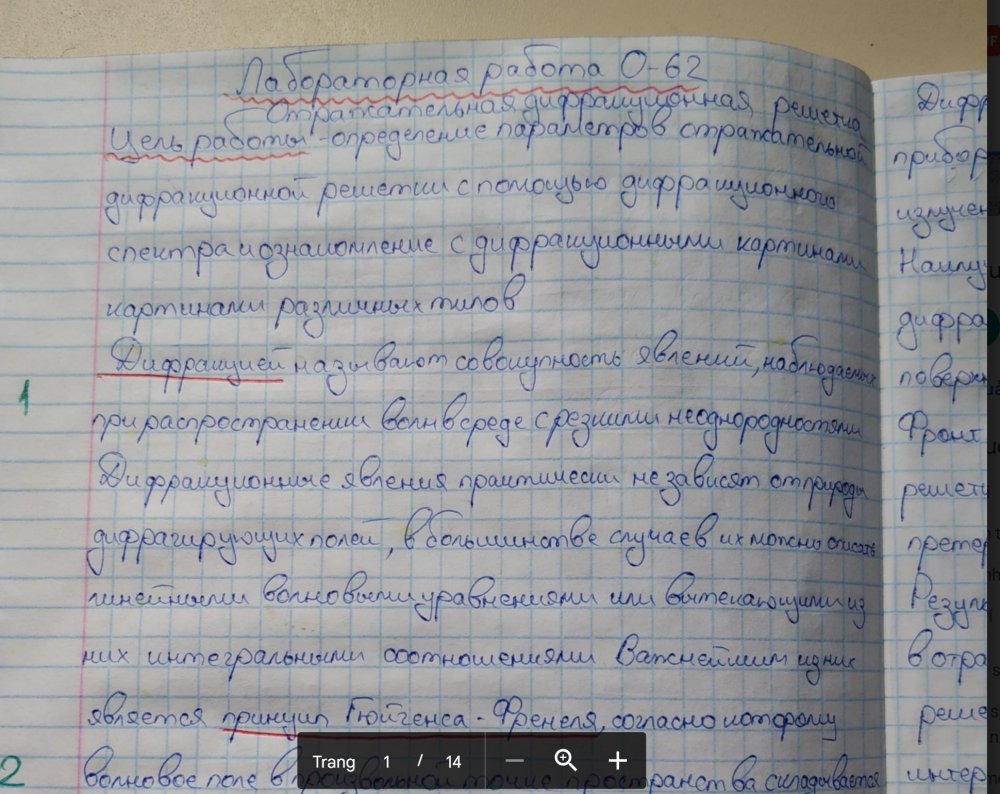 Лабораторная работа О-62
Отражательная дифракционная решетка
Цель работы - определение параметров отражательной
дифракционной решетки с помощью дифракционного
спектра и ознакомление с дифракционными картинами
картинами различных типов
Дифракцией называют совокупность явлений, наблюдаемых
1
при распространении волн в среде с резкими неоднородностями
Дифракционные явления практически не зависят от природы
дифрагирующих полей, в большинстве случаев их можно описать
линейными волновыми уравнениями или вытекающими из
них интегральными соотношениями Важнейшим из них
является принцип Гюйгенса - Френеля, согласно которому
2
волновое поле в произвольной точке пространства складывается
Дифр
прибор
излучен
Наилу
дифра
поверхн
Фронт
решетк
претер
Резуль
в отра
реше
интер
Trang 1 / 14